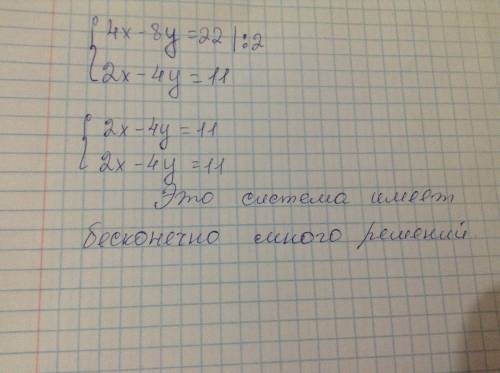 4x-8y=22 |:2
2x-4y=11
2x-4y=11
2x-4y=11
Это система имеет
бесконечно много решений.